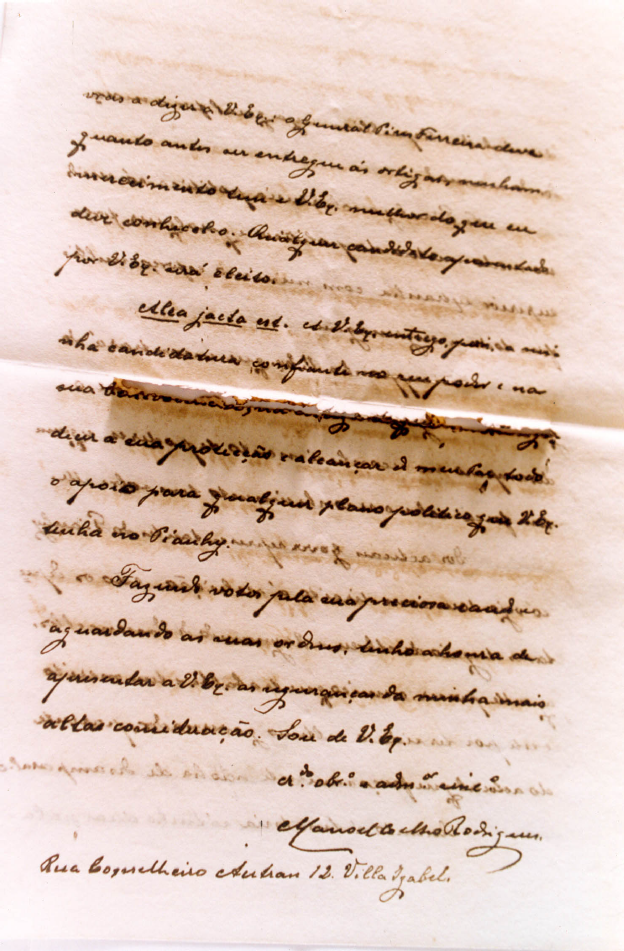 a dizer a V. Ex.: o General Pires Ferreira deve
quanto antes ser entregue ás ortigas, nenhum
merecimento tem e V. Ex. melhor do que eu
deve conhecel-o. Qualquer candidato apresentado
por V. Ex. será eleito.
Alea jacta est. A V. Ex. entrego, pois, a mi-
nha candidatura, confiante no seu poder e na
sua
a sua protecção e alcançar de meu Pae todo
o apoio para qualquer plano politico que V. Ex.
tenha no Piauhy.
Fazendo votos pela sua preciosa saude e
aguardando as suas ordens, tenho a honra de
apresentar a V. Ex. as seguranças da minha mais
alta consideração. Sou de V. Ex.
cr.do obr.o e adm.or sinc.o
Manoel Coelho Rodrigues.
Rua Conselheiro Autran 12. Villa Izabel.